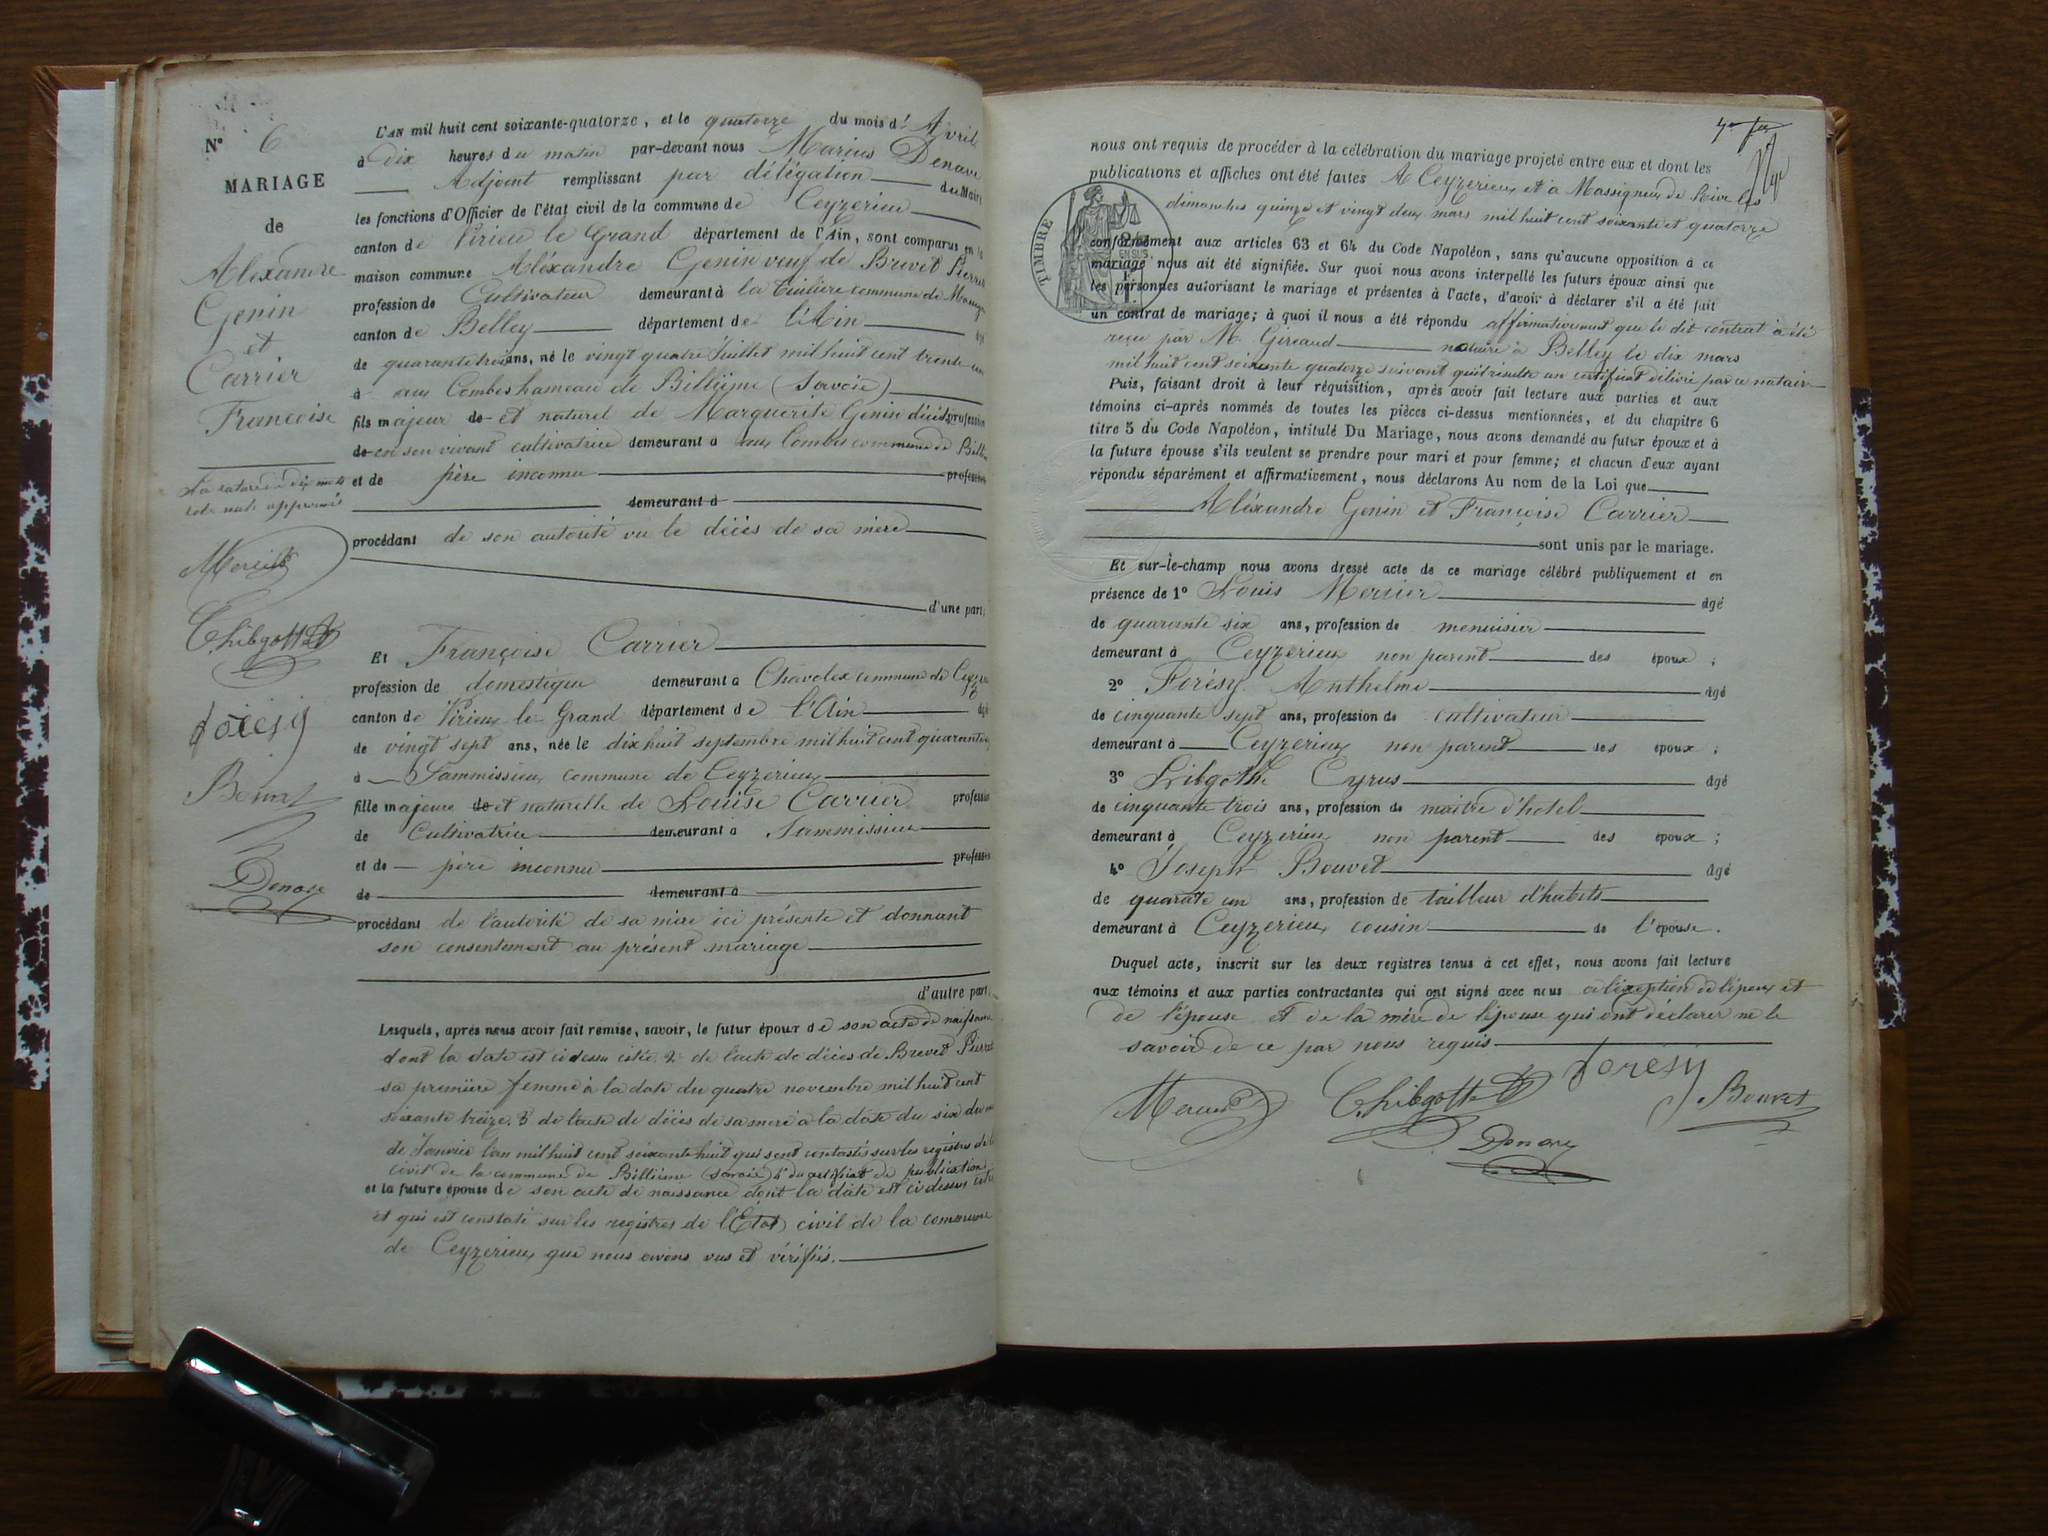 Nº 6
MARIAGE
de
Alexandre
Genin
et
Carrier
Francoise
approuvé
Mercier
Thibgotte
forésy
Bouvet
Denave
L'AN mil huit cent soixante-quatorze, et le quatorze du mois d' Avril
à dix heures du matin par-devant nous Marius Denave
Adjoint remplissant par délégation du Maire
les fonctions d'Officier de l'état civil de la commune de Ceyzerieu
canton de Virieu le Grand département de l'Ain, sont comparus en la
maison commune Aléxandre Genin veuf de Brevet Pierrette
profession de Cultivateur demeurant à la tuilière commune de
canton de Belley département de l'Ain
de quarante trois ans, né le vingt quatre Juillet mil huit cent trente
à aux Combes hameau de Billième (Savoie)
fils majeur de et naturel de Marguerite Genin décédée profession
de en son vivant cultivatrice demeurant à aux Combes commune de
et de père inconnu profession
demeurant à
procédant de son autorité vu le décès de sa mère
d'une part;
Et Françoise Carrier
profession de domestique demeurant à Chavolex commune de
canton de Virieu le Grand département de l'Ain âgé
de vingt sept ans, née le dix huit septembre mil huit cent quarante
à Sammissieu commune de Ceyzerieu
fille majeure de et naturelle de Louise Carrier profession
de Cultivatrice demeurant à Sammissieu
et de père inconnu profession
de demeurant à
procédant de l'autorité de sa mère ici présente et donnant
son consentement au présent mariage
d'autre part;
Lesquels, après nous avoir fait remise, savoir, le futur époux de son acte de naissance
dont la date est ci dessus citée, 2º de l'acte de décès de Brevet Pierrette
sa première femme à la date du quatre novembre mil huit cent
soixante treize, 3 de l'acte de décès de sa mère à la date du six du mois
de Janvier l'an mil huit cent soixante huit qui sont constatés sur les registres de l'
civil de la commune de Billième (Savoie) 4º du certificat de publication
et la future épouse de son acte de naissance dont la date est ci dessus citée
et qui est constaté sur les registres de l'Etat civil de la commune
de Ceyzerieu que nous avons vus et vérifiés.
nous ont requis de procéder à la célébration du mariage projeté entre eux et dont les
publications et affiches ont été faites A Ceyzerieu et à Massignieu de Rive les
dimanches quinze et vingt deux mars mil huit cent soixante et quatorze
TIMBRE
conformément aux articles 63 et 64 du Code Napoléon, sans qu'aucune opposition à ce
mariage nous ait été signifiée. Sur quoi nous avons interpellé les futurs époux ainsi que
les personnes autorisant le mariage et présentes à l'acte, d'avoir à déclarer s'il a été fait
un contrat de mariage; à quoi il nous a été répondu affirmativement que le dit contrat a été
reçu par M. Gireaud notaire à Belley le dix mars
mil huit cent soixante quatorze suivant qu'il résulte un certificat délivré par ce notaire
Puis, faisant droit à leur réquisition, après avoir fait lecture aux parties et aux
témoins ci-après nommés de toutes les pièces ci-dessus mentionnées, et du chapitre 6
titre 5 du Code Napoléon, intitulé Du Mariage, nous avons demandé au futur époux et à
la future épouse s'ils veulent se prendre pour mari et pour femme; et chacun d'eux ayant
répondu séparément et affirmativement, nous déclarons Au nom de la Loi que
Aléxandre Genin et Françoise Carrier
sont unis par le mariage.
Et sur-le-champ nous avons dressé acte de ce mariage célébré publiquement et en
présence de 1º Louis Mercier âgé
de quarante six ans, profession de menuisier
demeurant à Ceyzerieu non parent des époux ;
2º Forésy Anthelme âgé
de cinquante sept ans, profession de cultivateur
demeurant à Ceyzerieu non parent des époux ;
3º Libgothe Cyrus âgé
de cinquante trois ans, profession de maître d'hotel
demeurant à Ceyzerieu non parent des époux ;
4º Joseph Bouvet âgé
de quarate un ans, profession de tailleur d'habits
demeurant à Ceyzerieu cousin de l'épouse.
Duquel acte, inscrit sur les deux registres tenus à cet effet, nous avons fait lecture
aux témoins et aux parties contractantes qui ont signé avec nous à l'éxeption de l'époux et
de l'épouse et de la mère de l'épouse qui ont déclarer ne le
savoir de ce par nous requis
forésy
Mercier Thibgotte Bouvet
Denave